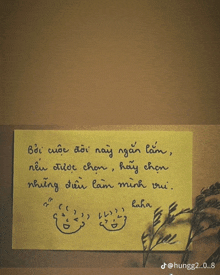 Bởi cuộc đời này ngắn lắm,
nếu được chọn, hãy chọn
những điều làm mình vui.
haha
@hungg2_0_8